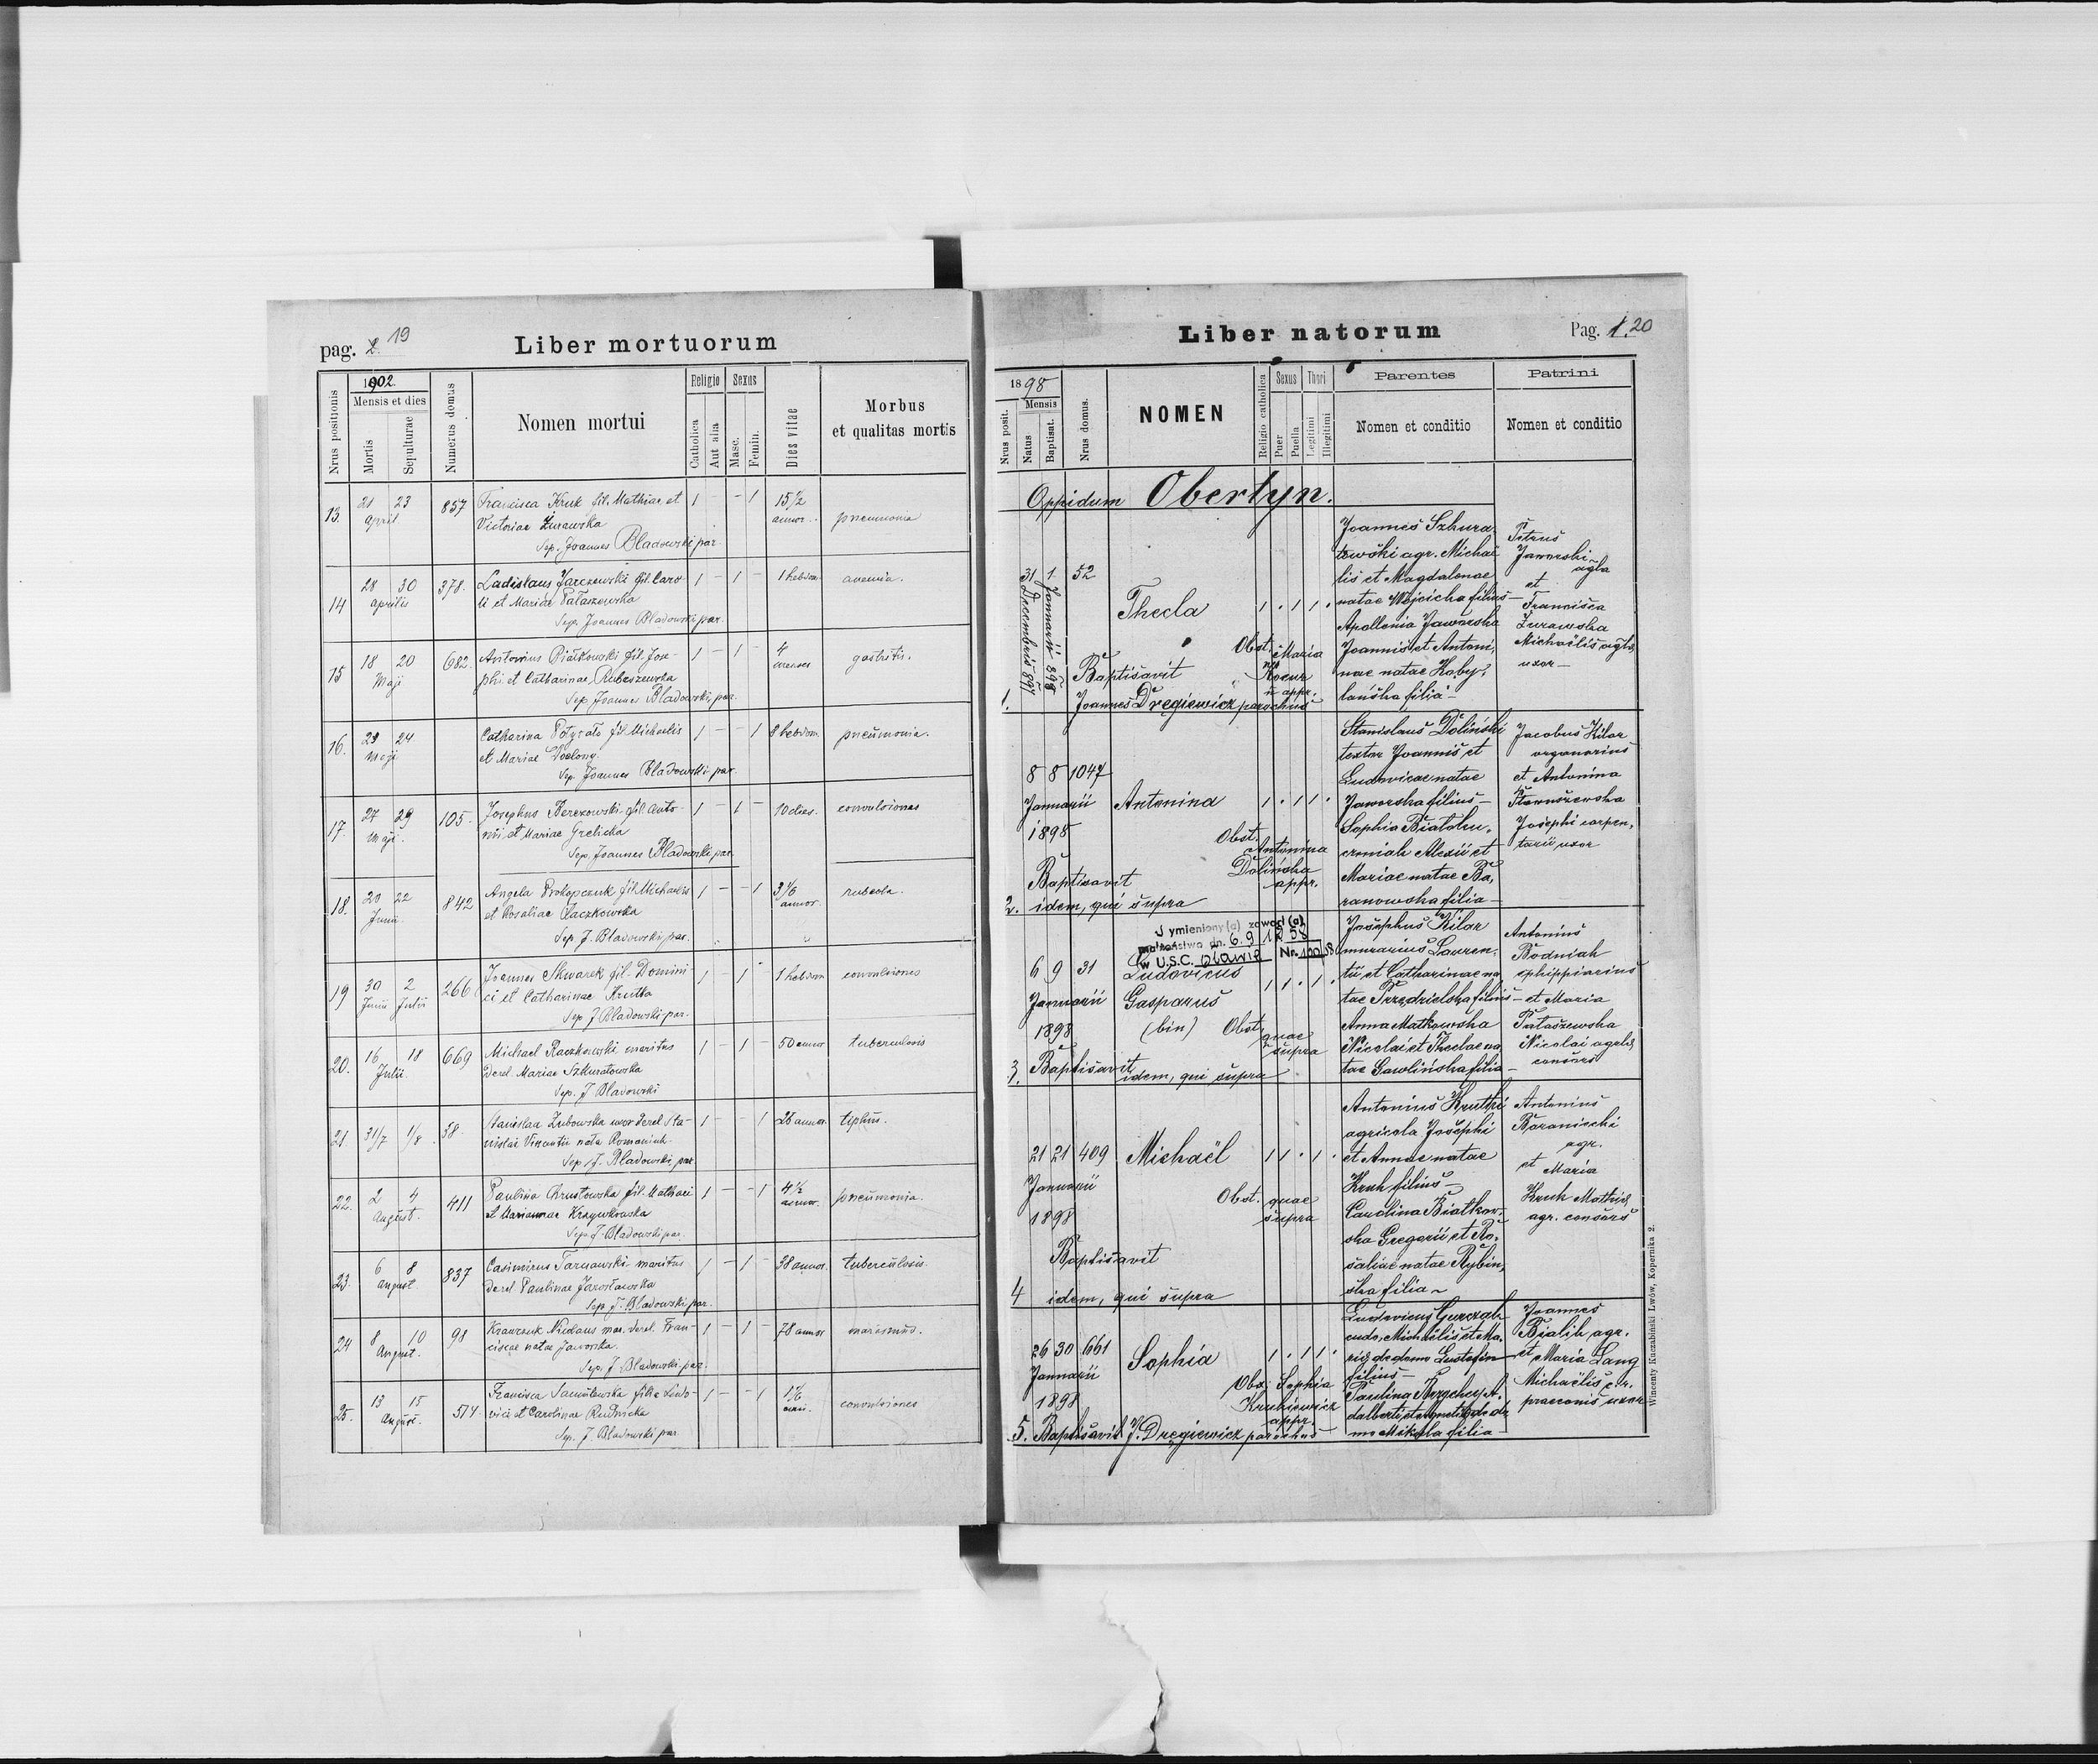 pag. 2. 19
Liber mortuorum
Nrus positionis
1902.
Mensis et dies
Mortis
Sepulturae
Numerus domus
Nomen mortui
Religio
Catholica
Aut alia
Sexus
Masc.
Femin.
Dies vitae
Morbus
et qualitas mortis
13. 21 23 857 Francisca Kruk fil. Mathiae et 1 - - 1 15 1/2
April Victoriae Żurawska annor. pneumonia
Sep. Joannes Bladowski par
14 28 30 378. Ladislaus Jarczewski fil. Caro- 1 - 1 - 1 hebdom. anemia.
Aprilis li et Mariae Pałaszewska
Sep. Joannes Bladowski par.
15 18 20 682. Antonius Białkowski fil. Jose- 1 - 1 - 4 gastritis.
Maji phi et Catharinae Rubaszewska menses
Sep. Joannes Bladowski, par.
16. 23 24 Catharina fil. Michaelis 1 - - 1 8 hebdom. pneumonia.
Maji et Mariae
Sep. Joannes Bladowski par.
17. 27 29 105. Josephus Berezowski fil. Anto- 1 - 1 - 10 dies. convulsiones
Maji. nii et Mariae Grelicha
Sep. Joannes Bladowski par.
18. 20 22 842 Angela Prokopczuk fil. Michaelis 1 - - 1 3 1/6 rubeola.
Junii et Rosaliae Zaczkowska annor.
Sep. J. Bladowski par.
19 30 2 266 Joannes Skwarek fil. Domini 1 - 1 - 1 hebdom convulsiones
Junii Julii ci et Catharinae Krutka
Sep. J Bladowski par.
20. 16 18 669 Michael Raczkowski maritus 1 - 1 - 50 annor tuberculosis
Julii. derel. Mariae Szkuratowska
Sep. J Bladowski
21. 31/7 1/8 38. Stanislaa Zubowska uxor derel Sta- 1 - - 1 26 annor. tiphus.
nislai Vincentii nata Romaniuk.
Sep. J. Bladowski, par
22. 2 4 411 Paulina Chrustowska fil. Mathaei 1 - - 1 4 1/2 pneumonia.
August. et Mariannae Krzywkowska annor.
Sep. J. Bladowski par.
23. 6 8 837 Casimirus Tarnawski maritus 1 - 1 - 38 annor. tuberculosis.
August derel Paulinae Jarosławska
Sep. J. Bladowski par.
24 8 10 98 Krawczuk Nicolaus mar. derel. Fran- 1 - 1 - 78 annor marasmus.
August. ciscae natae Jaworska.
Sep. J Bladowski par.
25. 13 15 514. Francisca filia Ludo- 1 - - 1 1 1/6 convulsiones
August. vici et Carolinae Rudnicka anni.
Sep. J. Bladowski par
Liber natorum
Pag. 1. 20
Nrus posit.
1898
Mensis
Natus
Baptisat.
Nrus domus.
NOMEN
Religio catholica
Sexus
Puer
Puella
Thori
Legitimi
Illegitimi
Parentes
Nomen et conditio
Patrini
Nomen et conditio
Oppidum Obertyn.
1. 31 Decembris 897
1 Januarii 898
52
Thecla
1 . 1 1 .
Obst. Maria
Kocur
n appr.
Baptisavit
Joannes Dręgiewicz parochus
Joannes Szkura-
towski agr. Michae
lis et Magdalenae
natae Wojcicka filius -
Apollonia Jaworska
Joannis et Antoni,
nae natae Koby,
lańska filia -
Petrus
Jaworski
agla
et
Francisca
Żurawska
Michaëlis aglae
uxor -
2. 8 8 1047
Januarii
1898
Antonina
1 . 1 1 .
Obst.
Antonina
Dolińska
appr.
Baptisavit
idem, qui supra
Stanislaus Doliński
textor Joannis et
Ludovicae natae
Jaworska filius -
Sophia Białoku,
rowniak Alexii et
Mariae natae Ba,
ranowska filia -
Jacobus Kilar
organarius
et Antonina
Staruszewska
Josephi carpen,
tarii uxor
Wymieniony(a) zawarł(a)
małżeństwo dn. 6.9.1958
w U.S.C. Oława Nr. 100/58
3. 6 9 31
Januarii
1898
Ludovicus
Gasparus
(bin)
1 1 . 1 .
Obst. quae
supra
Baptisavit
idem, qui supra
Josephus Kilar
murarius Lauren-
tii et Catharinae na
tae Przędzielska filius -
Anna Matkowska
Nicolai et Theclae na
tae Gawlińska filia -
Antonius
Bodniak
ephippiarius
et Maria
Pałaszewska
Nicolai agrlae
consors
4 21 21 409
Januarii
1898
Michaël
1 1 . 1 .
Obst. quae
supra
Baptisavit
idem, qui supra
Antonius Krutki
agricola Josephi
et Annae natae
Kruk filius -
Carolina Białkow-
ska Gregorii et Ro,
saliae natae Rybin,
ska filia -
Antonius
Baraniecki
agr.
et
Maria
Kruk Mathiae
agr. consors
5. 26 30 661
Januarii
1898
Sophia
1 . 1 1 .
Obst. Sophia
Krukiewicz
appr.
Baptisavit J. Dręgiewicz parochus
Ludovicus Gurczak
cudo, Michaëlis et Ma-
riae de domo
filius -
Paulina
dalberti et de do
mo Mikuła filia -
Joannes
Bialik agr.
et Maria Lang
Michaëlis
praeconis uxor
Wincenty Kuczabiński Lwów, Kopernika 2.